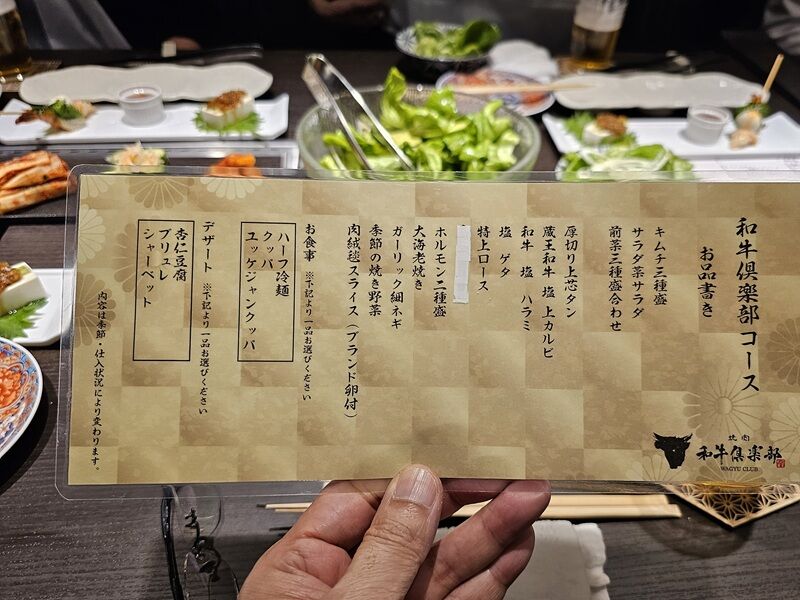 和牛倶楽部コース
お品書き
キムチ三種盛
サラダ菜サラダ
前菜三種盛合わせ
厚切り上芯タン
蔵王和牛 塩 上カルビ
和牛 塩 ハラミ
塩 ゲタ
特上ロース
ホルモン二種盛
大海老焼き
ガーリック細ネギ
季節の焼き野菜
肉絨毯スライス（ブランド卵付）
お食事 ※下記より一品お選びください
ハーフ冷麺
クッパ
ユッケジャンクッパ
デザート ※下記より一品お選びください
杏仁豆腐
ブリュレ
シャーベット
内容は季節・仕入状況により変わります。
焼肉
和牛倶楽部
WAGYU CLUB